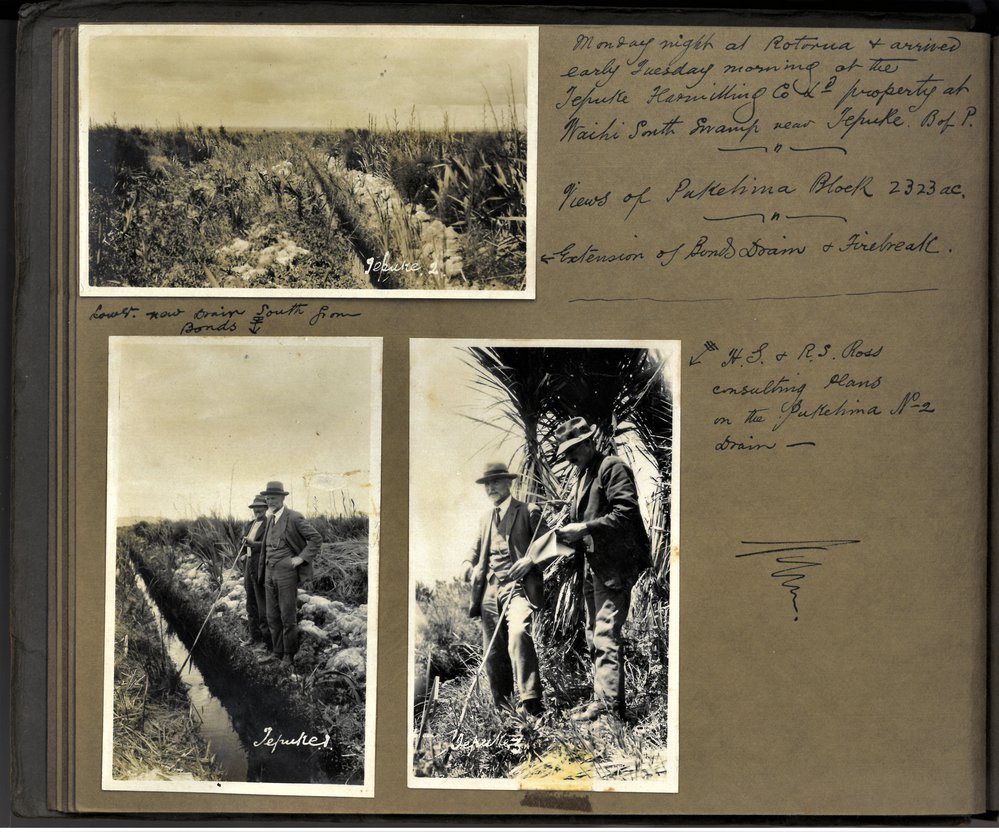 Monday night at Rotorua & arrived
early Tuesday morning at the
Tepuke Harmilling Co Ld property at
Waihi South Swamp near Tepuke. B of P.
"
Views of Pukehina Block 2323 ac.
"
Extension of Bonds Drain & Firebreak.
Tepuke 2
new Drain South from
Bonds
H.S. & R.S. Ross
consulting plans
on the Pukehina No-2
Drain —
Tepuke 1
Tepuke 3